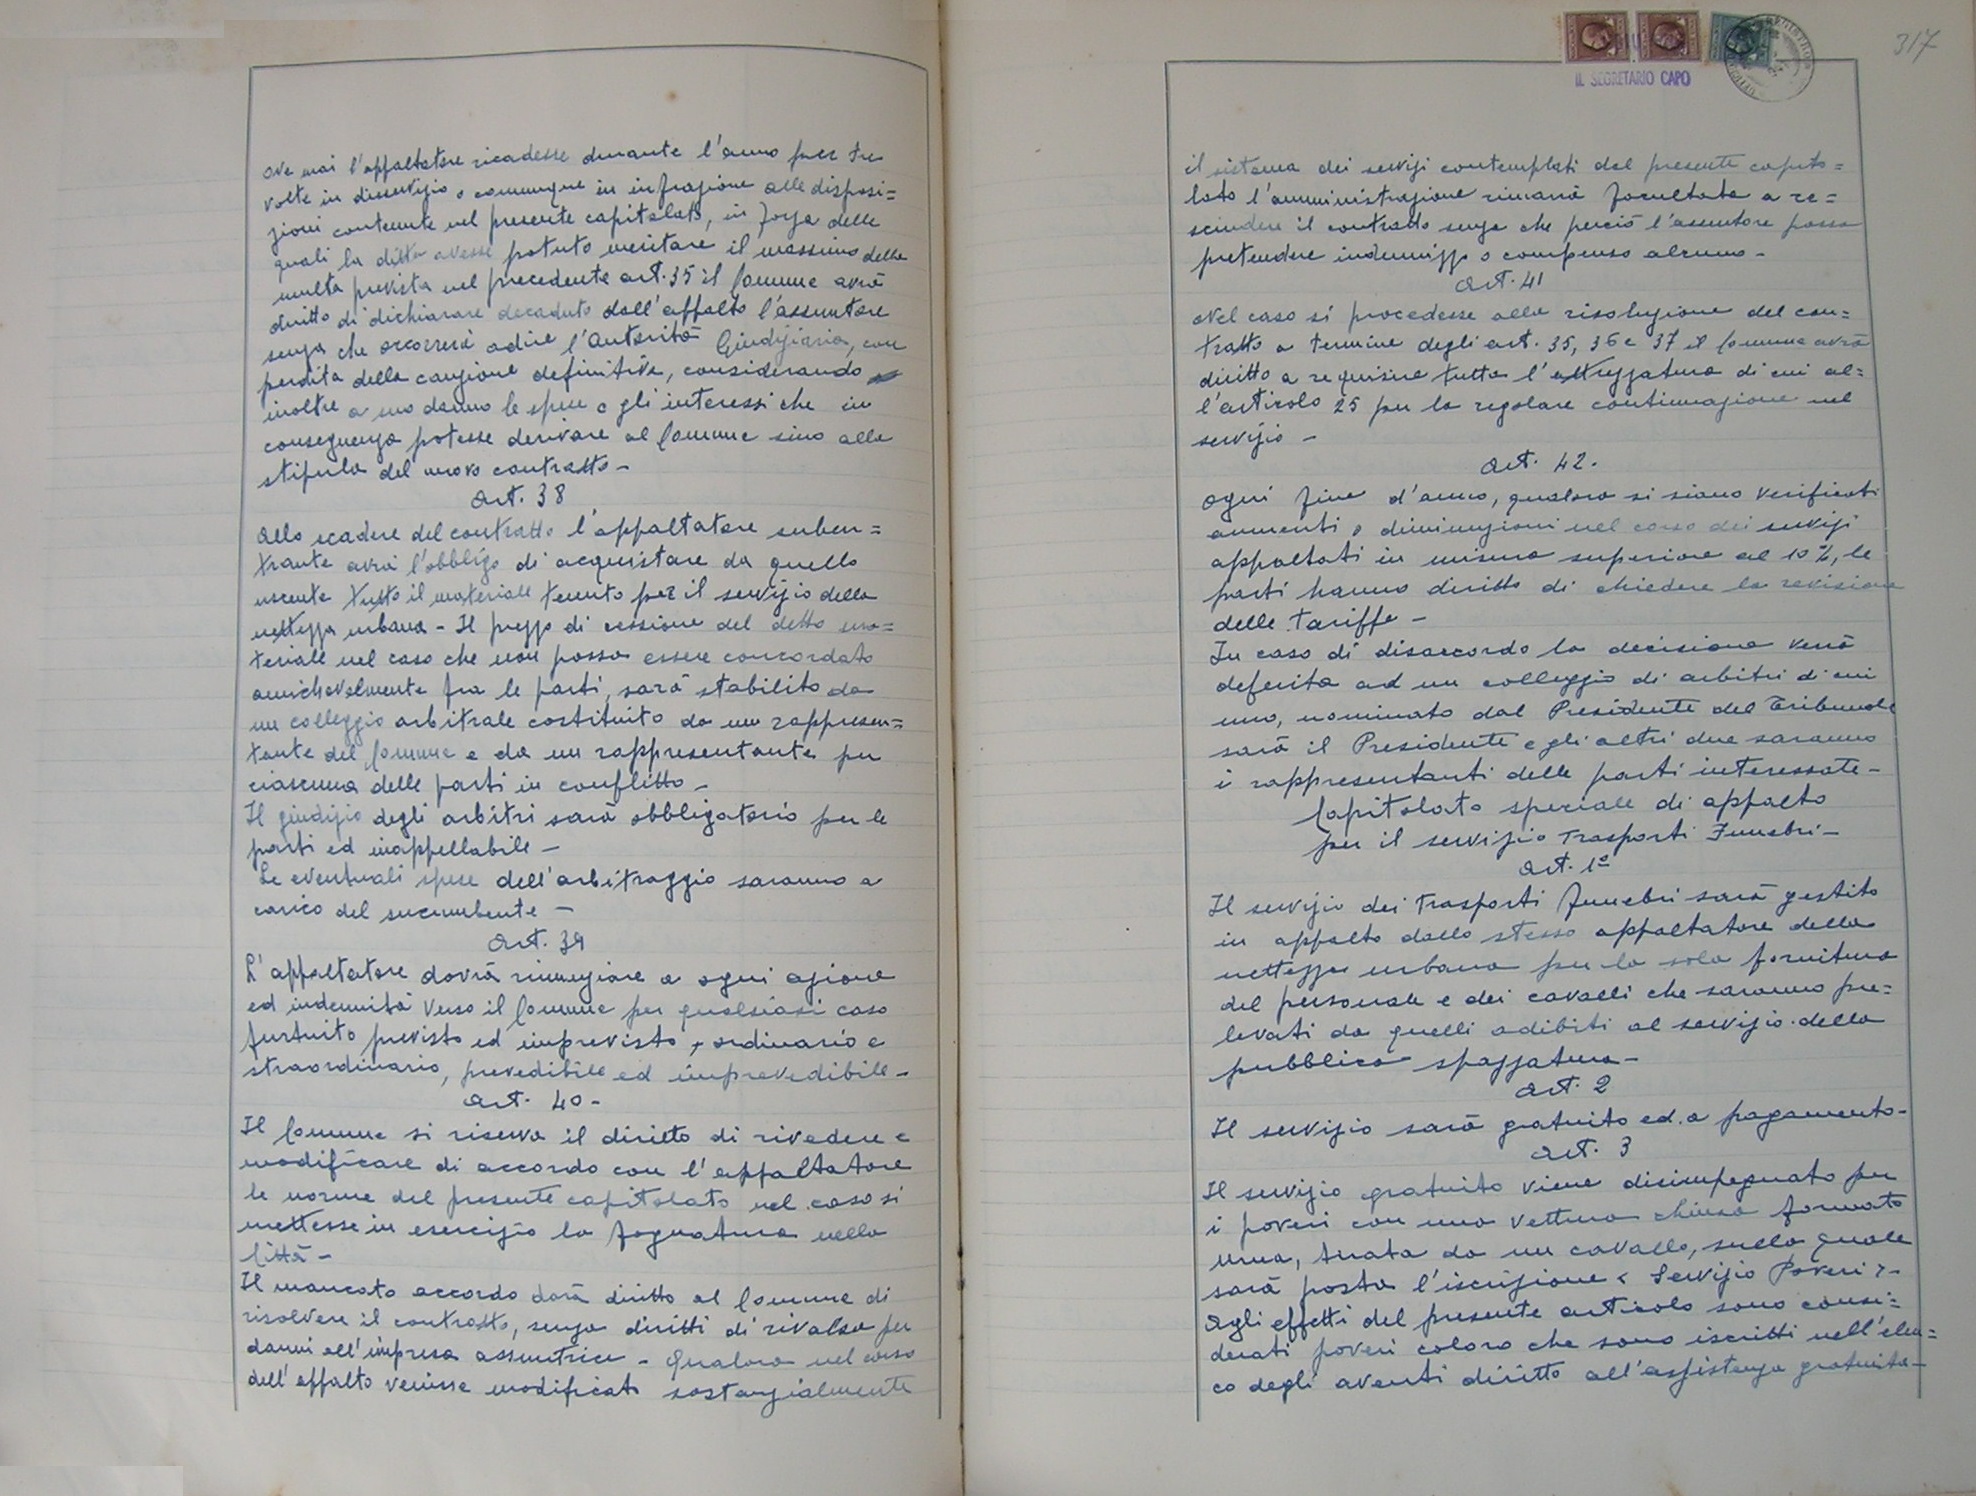 ove mai l'appaltatore ricadesse durante l'anno per tre
volte in disservizio o comunque in infrazione alle disposi=
zioni contenute nel presente capitolato, in forza delle
quali la ditta avesse potuto meritare il massimo della
multa prevista nel precedente art. 35 il Comune avrà
diritto di dichiarare decaduto dall'appalto l'assuntore
senza che occorrerà adire l'Autorità Giudiziaria, con
perdita della cauzione definitiva, considerando
inoltre a suo danno le spese o gli interessi che in
conseguenza potesse derivare al Comune sino alla
stipula del nuovo contratto -
Art. 38
Allo scadere del contratto l'appaltatore suben=
trante avrà l'obbligo di acquistare da quello
uscente tutto il materiale tenuto per il servizio della
nettezza urbana - Il prezzo di cessione del detto ma=
teriale nel caso che non possa essere concordato
amichevolmente fra le parti, sarà stabilito da
un colleggio arbitrale costituito da un rappresen=
tante del Comune e da un rappresentante per
ciascuna delle parti in conflitto -
Il giudizio degli arbitri sarà obbligatorio per le
parti ed inappellabile -
Le eventuali spese dell'arbitraggio saranno a
carico del succumbente -
Art. 39
L'appaltatore dovrà rinunziare a ogni azione
ed indennità verso il Comune per qualsiasi caso
furtuito previsto ed imprevisto, ordinario e
straordinario, prevedibile ed imprevedibile -
Art. 40 -
Il Comune si riserva il diritto di rivedere e
modificare di accordo con l'appaltatore
le norme del presente capitolato nel caso si
mettesse in esercizio la fognatura nella
Città -
Il mancato accordo darà diritto al Comune di
risolvere il contratto, senza diritti di rivalsa per
danni all'impresa assuntrice - Qualora nel corso
dell'appalto venisse modificato sostanzialmente
317
IL SEGRETARIO CAPO
il sistema dei servizi contemplati dal presente capito=
lato l'amministrazione rimarrà facultata a re=
scindere il contratto senza che perciò l'assuntore possa
pretendere indennizzo o compenso alcuno -
Art. 41
Nel caso si procedesse alla risoluzione del con=
tratto a termine degli art. 35, 36 e 37 il Comune avrà
diritto a requisire tutta l'attrezzatura di cui al=
l'articolo 25 per la regolare continuazione nel
servizio -
Art. 42.
Ogni fine d'anno, qualora si siano verificati
aumenti o diminuzioni nel corso dei servizi
appaltati in misura superiore al 10%, le
parti hanno diritto di chiedere la revisione
delle tariffe -
In caso di disaccordo la decisione verrà
deferita ad un colleggio di arbitri di cui
uno, nominato dal Presidente del Tribunale
sarà il Presidente e gli altri due saranno
i rappresentanti delle parti interessate -
Capitolato speciale di appalto
per il servizio Trasporti Funebri -
Art. 1°
Il servizio dei Trasporti Funebri sarà gestito
in appalto dallo stesso appaltatore della
nettezza urbana per la sola fornitura
del personale e dei cavalli che saranno pre=
levati da quelli adibiti al servizio della
pubblica spazzatura -
Art. 2
Il servizio sarà gratuito ed a pagamento -
Art. 3
Il servizio gratuito viene disimpegnato per
i poveri con una vettura chiusa formato
urna, tirata da un cavallo, sulla quale
sarà posta l'iscrizione « Servizio Poveri » -
Agli effetti del presente articolo sono consi=
derati poveri coloro che sono iscritti nell'elen=
co degli aventi diritto all'assistenza gratuita -